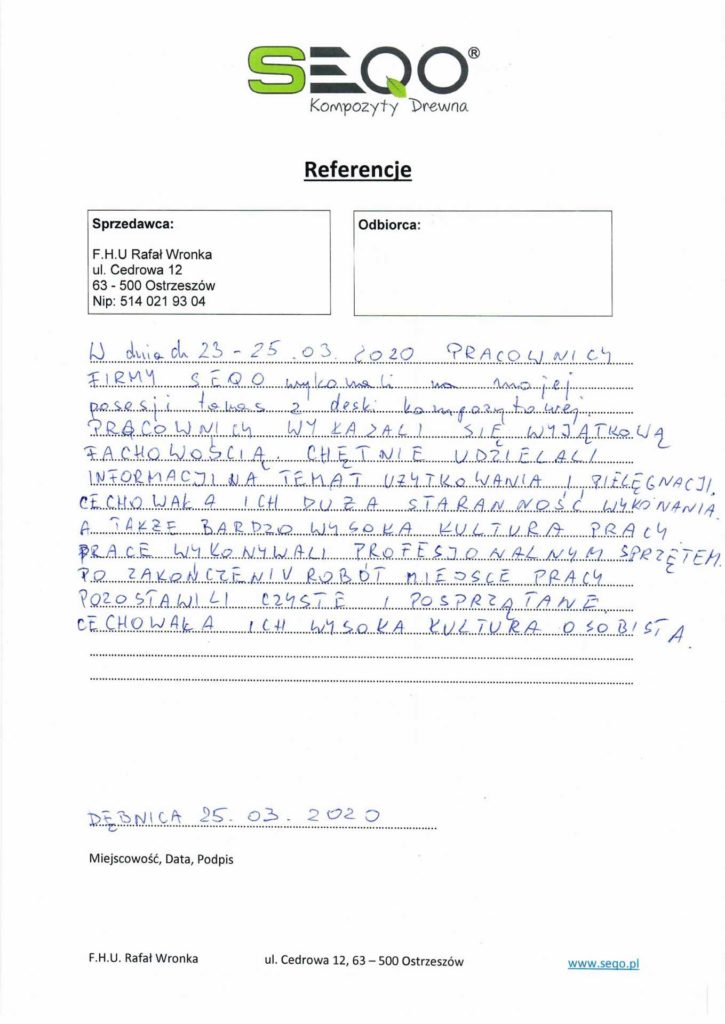 SEQO®
Kompozyty Drewna
Referencje
Sprzedawca:
F.H.U Rafał Wronka
ul. Cedrowa 12
63 - 500 Ostrzeszów
Nip: 514 021 93 04
Odbiorca:
W dniach 23 - 25 .03. 2020 PRACOWNICY
FIRMY SEQO wykonali na mojej
posesji taras z deski kompozytowej.
PRACOWNICY WYKAZALI SIĘ WYJĄTKOWĄ
FACHOWOŚCIĄ. CHĘTNIE UDZIELALI
INFORMACJI NA TEMAT UŻYTKOWANIA I PIELĘGNACJI.
CECHOWAŁA ICH DUŻA STARANNOŚĆ WYKONANIA.
A TAKŻE BARDZO WYSOKA KULTURA PRACY.
PRACE WYKONYWALI PROFESJONALNYM SPRZĘTEM.
PO ZAKOŃCZENIU ROBÓT MIEJSCE PRACY
POZOSTAWILI CZYSTE I POSPRZĄTANE.
CECHOWAŁA ICH WYSOKA KULTURA OSOBISTA.
DĘBNICA 25. 03. 2020
Miejscowość, Data, Podpis
F.H.U. Rafał Wronka
ul. Cedrowa 12, 63 – 500 Ostrzeszów
www.seqo.pl